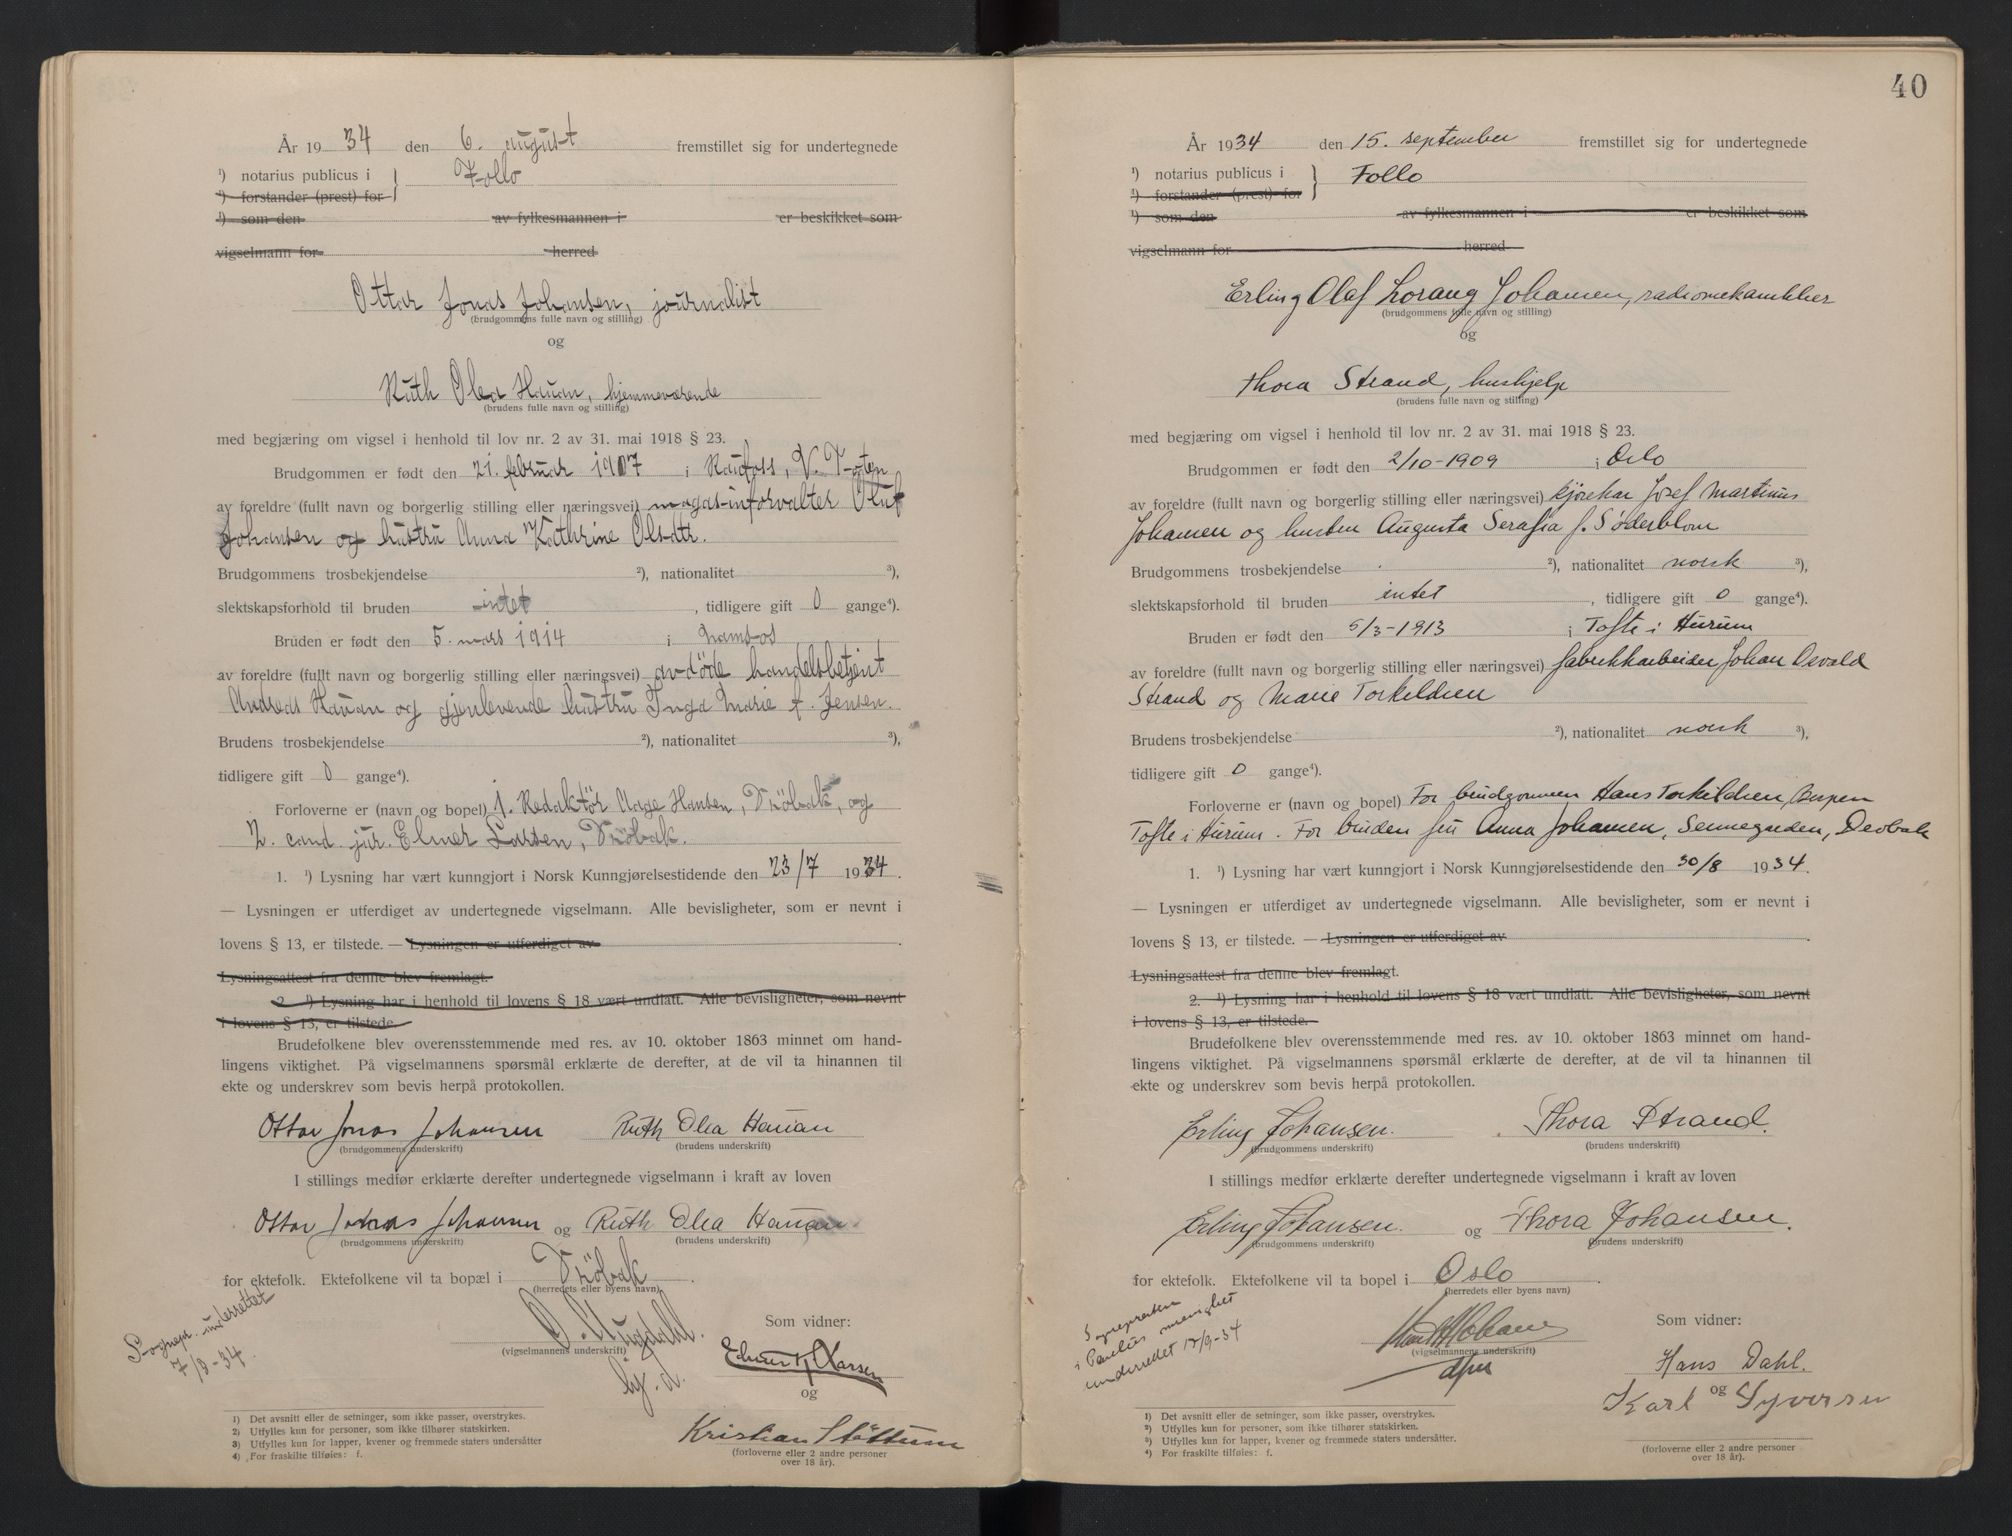 År 1934 den 6. august fremstillet sig for undertegnede
¹) notarius publicus i } Follo
¹) forstander (prest) for
¹) som den av fylkesmannen i er beskikket som
vigselmann for herred
Ottar Jonas Johansen, journalist
(brudgommens fulle navn og stilling)
og
Ruth Olea Hauan, hjemmeværende
(brudens fulle navn og stilling)
med begjæring om vigsel i henhold til lov nr. 2 av 31. mai 1918 § 23.
Brudgommen er født den 21. februar 1907 i Raufoss, V. Toten
av foreldre (fullt navn og borgerlig stilling eller næringsvei) magasinforvalter Oluf
Johansen og hustru Anna Kathrine Olsdtr.
Brudgommens trosbekjendelse ²), nationalitet ³),
slektskapsforhold til bruden intet, tidligere gift 0 gange⁴).
Bruden er født den 5. mars 1914 i Namsos
av foreldre (fullt navn og borgerlig stilling eller næringsvei) avdøde handelsbetjent
Andreas Hauan og gjenlevende hustru Inga Marie f. Jensen.
Brudens trosbekjendelse ²), nationalitet ³),
tidligere gift 0 gange⁴).
Forloverne er (navn og bopel) 1. Redaktör Aage Hansen, Dröbak, og
2. cand. jur. Elmer Larsen, Dröbak.
1. ¹) Lysning har vært kunngjort i Norsk Kunngjørelsestidende den 23/7 1934.
— Lysningen er utferdiget av undertegnede vigselmann. Alle bevisligheter, som er nevnt i
lovens § 13, er tilstede. — Lysningen er utferdiget av
Lysningsattest fra denne blev fremlagt.
2. ¹) Lysning har i henhold til lovens § 18 vært undlatt. Alle bevisligheter, som nevnt
i lovens § 13, er tilstede.
Brudefolkene blev overensstemmende med res. av 10. oktober 1863 minnet om hand-
lingens viktighet. På vigselmannens spørsmål erklærte de derefter, at de vil ta hinannen til
ekte og underskrev som bevis herpå protokollen.
Ottar Jonas Johansen Ruth Olea Hauan
(brudgommens underskrift) (brudens underskrift)
I stillings medfør erklærte derefter undertegnede vigselmann i kraft av loven
Ottar Jonas Johansen og Ruth Olea Hauan
(brudgommens underskrift) (brudens underskrift)
for ektefolk. Ektefolkene vil ta bopæl i Dröbak
(herredets eller byens navn)
Sognepr. underrettet
7/8-34.
O. Augdahl.
(vigselmannens underskrift)
hj. d.
Som vidner:
Elmer Larsen
og
Kristian Stöttum
(forloverne eller 2 andre personer
over 18 år).
1) Det avsnitt eller de setninger, som ikke passer, overstrykes.
2) Utfylles kun for personer, som ikke tilhører statskirken.
3) Utfylles kun for lapper, kvener og fremmede staters undersåtter
4) For fraskilte tilføies: f.
40
År 1934 den 15. september fremstillet sig for undertegnede
¹) notarius publicus i } Follo
¹) forstander (prest) for
¹) som den av fylkesmannen i er beskikket som
vigselmann for herred
Erling Olaf Lorang Johansen, radiomekanikker
(brudgommens fulle navn og stilling)
og
Thora Strand, hushjelp
(brudens fulle navn og stilling)
med begjæring om vigsel i henhold til lov nr. 2 av 31. mai 1918 § 23.
Brudgommen er født den 2/10-1909 i Oslo
av foreldre (fullt navn og borgerlig stilling eller næringsvei) kjørekar Josef Martinius
Johansen og hustru Augusta Serafia f. Søderblom
Brudgommens trosbekjendelse ²), nationalitet norsk ³),
slektskapsforhold til bruden intet, tidligere gift 0 gange⁴).
Bruden er født den 5/3-1913 i Tofte i Hurum
av foreldre (fullt navn og borgerlig stilling eller næringsvei) fabrikkarbeider Johan Osvald
Strand og Marie Torkildsen
Brudens trosbekjendelse ²), nationalitet norsk ³),
tidligere gift 0 gange⁴).
Forloverne er (navn og bopel) For brudgommen Hans Torkildsen,
Tofte i Hurum. For bruden fru Anna Johansen, Sennegarden, Drøbak
1. ¹) Lysning har vært kunngjort i Norsk Kunngjørelsestidende den 30/8 1934.
— Lysningen er utferdiget av undertegnede vigselmann. Alle bevisligheter, som er nevnt i
lovens § 13, er tilstede. — Lysningen er utferdiget av
Lysningsattest fra denne blev fremlagt.
2. ¹) Lysning har i henhold til lovens § 18 vært undlatt. Alle bevisligheter, som nevnt
i lovens § 13, er tilstede.
Brudefolkene blev overensstemmende med res. av 10. oktober 1863 minnet om hand-
lingens viktighet. På vigselmannens spørsmål erklærte de derefter, at de vil ta hinannen til
ekte og underskrev som bevis herpå protokollen.
Erling Johansen. Thora Strand.
(brudgommens underskrift) (brudens underskrift)
I stillings medfør erklærte derefter undertegnede vigselmann i kraft av loven
Erling Johansen. og Thora Johansen.
(brudgommens underskrift) (brudens underskrift)
for ektefolk. Ektefolkene vil ta bopel i Oslo
(herredets eller byens navn)
Sognepresten
i Paulus menighet
underrettet 17/9-34
(vigselmannens underskrift)
Som vidner:
Hans Dahl.
og
Karl Syversen
(forloverne eller 2 andre personer
over 18 år).
1) Det avsnitt eller de setninger, som ikke passer, overstrykes.
2) Utfylles kun for personer, som ikke tilhører statskirken.
3) Utfylles kun for lapper, kvener og fremmede staters undersåtter.
4) For fraskilte tilføies: f.